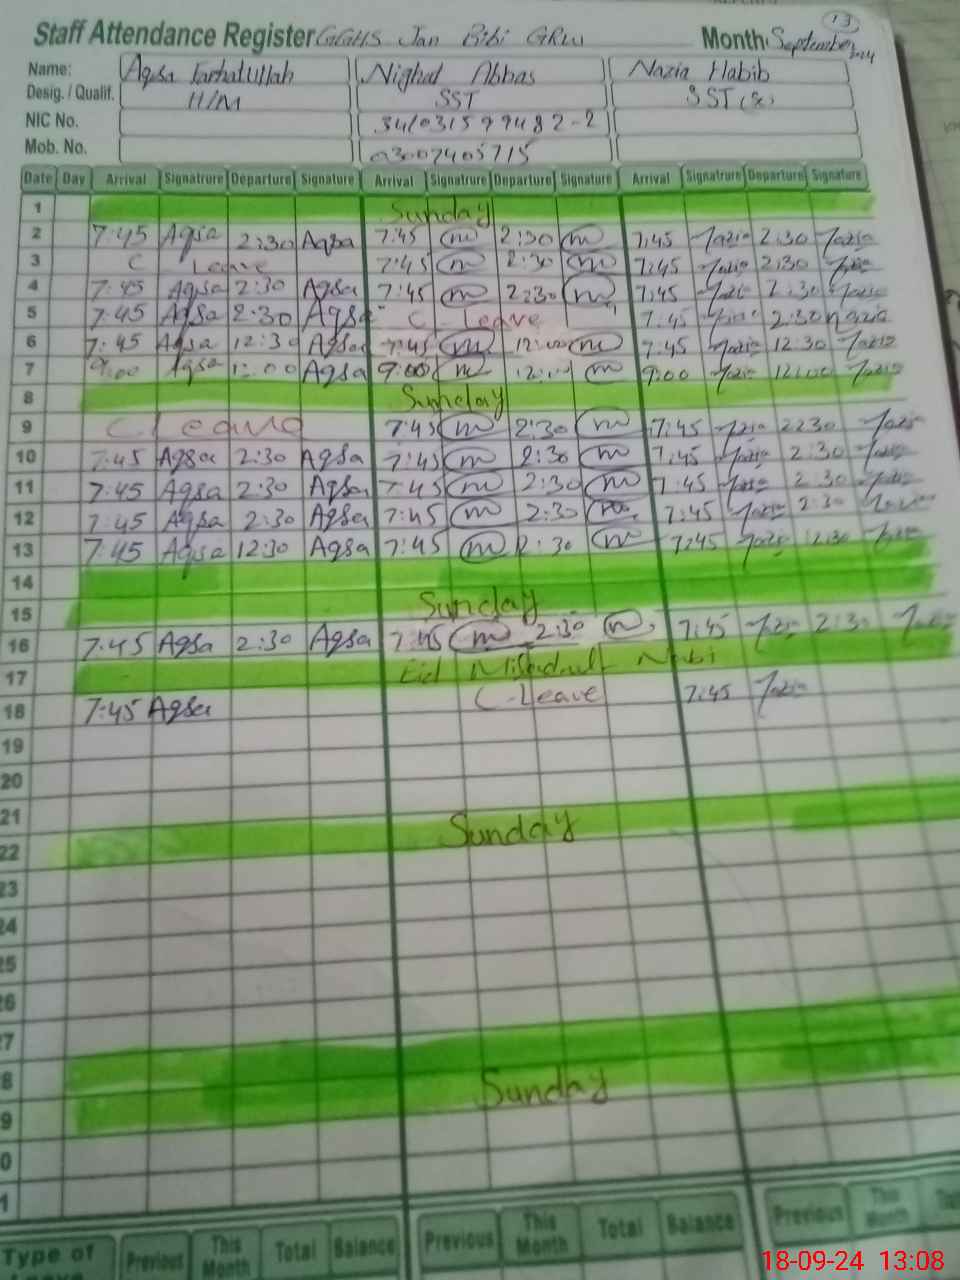 13
Staff Attendance Register GGHS Jan Bibi GRW Month: September 2024
Name: Aqsa Farhatullah Nighat Abbas Nazia Habib
Desig. / Qualif. H/M SST SST
NIC No.
Mob. No. 03007405715
Date Day Arrival Signatrure Departure Signature Arrival Signatrure Departure Signature Arrival Signatrure Departure Signature
1 Sunday
2 7:45 Aqsa 2:30 Aqsa 7:45 m 2:30 m 7:45 Nazia 2:30 Nazia
3 C Leave 7:45 m 2:30 m 7:45 Nazia 2:30 Nazia
4 7:45 Aqsa 2:30 Aqsa 7:45 m 2:30 m 7:45 Nazia 2:30 Nazia
5 7:45 Aqsa 2:30 Aqsa C. Leave 7:45 Nazia 2:30 Nazia
6 7:45 Aqsa 12:30 Aqsa 7:45 m m 7:45 Nazia 12:30 Nazia
7 9:00 Aqsa Aqsa 9:00 m m 9:00 Nazia 12:00 Nazia
8 Sunday
9 C. Leave 7:45 m 2:30 m 7:45 Nazia 2:30 Nazia
10 7:45 Aqsa 2:30 Aqsa 7:45 m 2:30 m 7:45 Nazia 2:30 Nazia
11 7:45 Aqsa 2:30 Aqsa 7:45 m 2:30 m 7:45 Nazia 2:30 Nazia
12 7:45 Aqsa 2:30 Aqsa 7:45 m 2:30 m 7:45 Nazia 2:30 Nazia
13 7:45 Aqsa 12:30 Aqsa 7:45 m m 7:45 Nazia 12:30 Nazia
14
15 Sunday
16 7:45 Aqsa 2:30 Aqsa 7:45 m 2:30 m 7:45 Nazia 2:30 Nazia
17 Eid Nabi
18 7:45 Aqsa C-Leave 7:45 Nazia
19
20
21
22 Sunday
23
24
25
26
7
8
9 Sunday
0
1
Type of Previous This Month Total Balance Previous This Month Total Balance Previous This Month
Leave
18-09-24 13:08